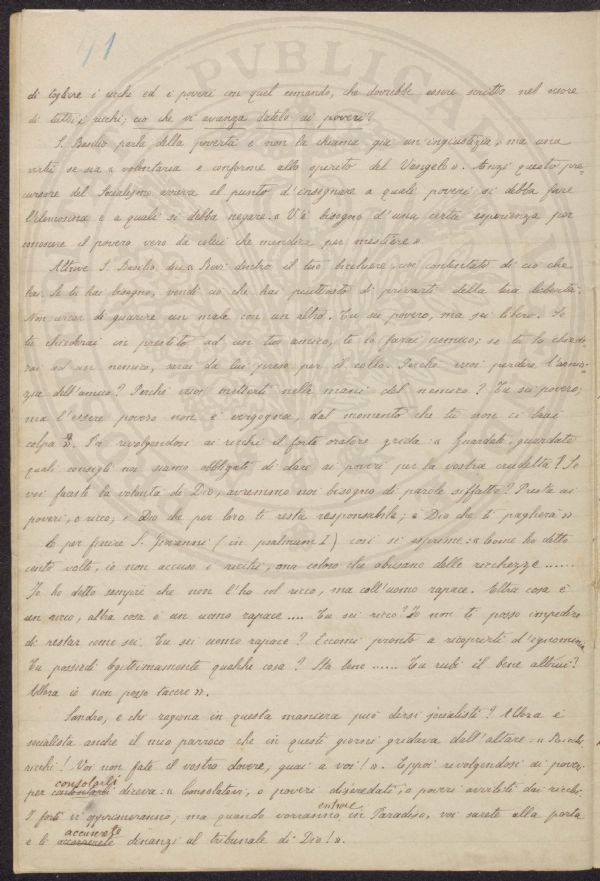 41
di togliere i ricchi ed i poveri con quel comando, che dovrebbe essere scritto nel cuore
di tutti i ricchi; ciò che vi avanza datelo ai poveri?
S. Basilio parla della povertà e non la chiama già un'ingiustizia, ma una
virtù se sia « volontaria e conforme allo spirito del Vangelo ». Anzi questo pre-
cursore del Socialismo arriva al punto d'insegnare a quali poveri si debba fare
l'elemosina e a quali si debba negare. « V'è bisogno d'una certa esperienza per
conoscere il povero vero da colui che mendica per mestiere »
Altrove S. Basilio dice « Bevi dentro il tuo bicchiere, cioè contentati di ciò che
hai. Se ti hai bisogno, vendi ciò che hai piuttosto di privarti della tua libertà.
Non cercar di guarire un male con un altro. Tu sei povero, ma sei libero. Se
tu chiederai in prestito ad un tuo amico, te lo farai nemico; se tu lo chiede-
rai ad un nemico, sarai da lui preso per il collo. Perchè vuoi perdere l'amici-
zia dell'amico? Perchè vuoi metterti nelle mani del nemico? Tu sei povero;
ma l'essere povero non è vergogna, dal momento che tu non ci hai
colpa ». Poi rivolgendosi ai ricchi il forte oratore grida: « Guardate, guardate
quali consigli noi siamo obbligati di dare ai poveri per la vostra crudeltà! Se
voi faceste la volontà di Dio, avremmo noi bisogno di parole siffatte? Presta ai
poveri, o ricco; è Dio che per loro ti resta responsabile; è Dio che ti pagherà »
E per finire S. Giovanni (in psalmum I) così si esprime: « Come ho detto
cento volte, io non accuso i ricchi, ma coloro che abusano delle ricchezze ......
Io ho detto sempre che non l'ho col ricco, ma coll'uomo rapace. Altra cosa è
un ricco, altra cosa è un uomo rapace .... Tu sei ricco? Io non ti posso impedire
di restar come sei. Tu sei uomo rapace? Eccomi pronto a ricoprirti d'ignominia
Tu possiedi legittimamente qualche cosa? Sta bene ...... Tu rubi il bene altrui?
Allora io non posso tacere ».
Sandro, e chi ragiona in questa maniera può dirsi socialista? Allora è
socialista anche il mio parroco che in questi giorni gridava dall'altare: « Ricchi
ricchi! Voi non fate il vostro dovere, guai a voi! ». Eppoi rivolgendosi ai poveri
consolarli
per diceva: « Consolatevi, o poveri diseredati, o poveri avviliti dai ricchi.
entrare
I forti vi opprimeranno, ma quando vorranno in Paradiso, voi sarete alla porta
accuserete
e li dinanzi al tribunale di Dio! ».